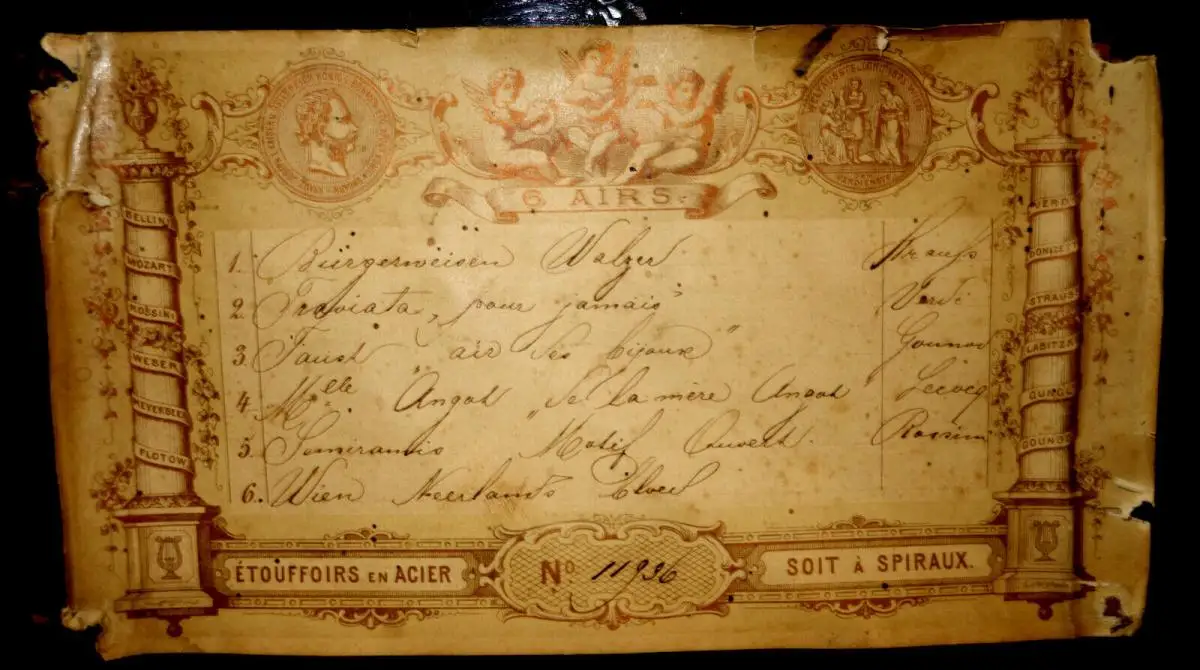 6 AIRS.
1. Bürgerweisen Walzer Strauss
2. Traviata, pour jamais" Verdi
3. Faust "air des bijoux" Gounod
4. Mlle. Angot "de la mère Angot Lecocq
5. Semiramis Motif Ouvert. Rossini
6. Wien Neerlands Bloed
BELLINI
MOZART
ROSSINI
WEBER
MEYERBEER
FLOTOW
VERDI
DONIZETTI
STRAUSS
LABITZKI
GUNGL
GOUNOD
ÉTOUFFOIRS EN ACIER
No. 11936
SOIT À SPIRAUX.